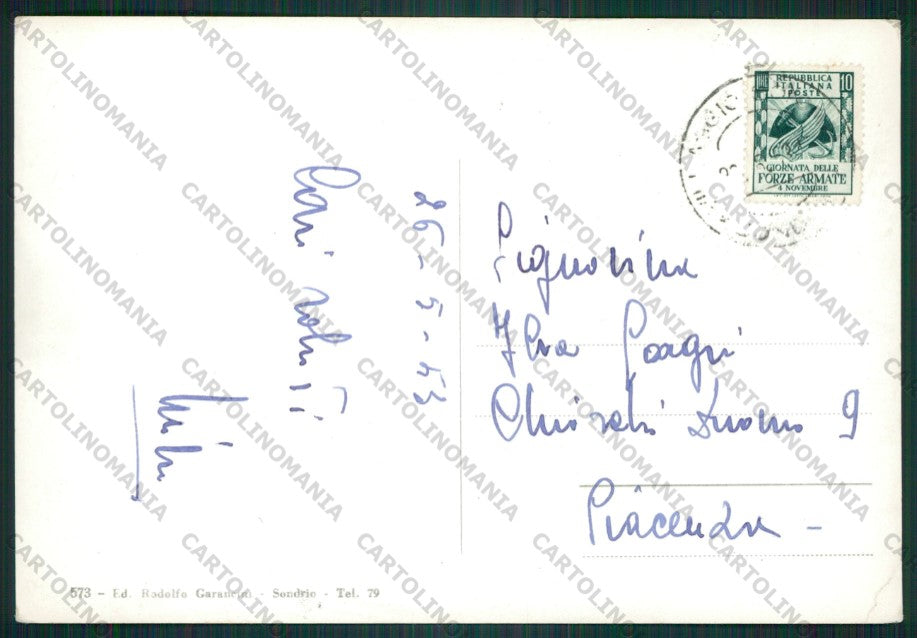 26-5-53
Cari saluti
Signorina
Ilva
Chiostri Duomo 9
Piacenza -
LIRE 10
REPUBBLICA
ITALIANA
POSTE
GIORNATA DELLE
FORZE ARMATE
4 NOVEMBRE
573 - Ed. Rodolfo Garancini - Sondrio - Tel. 79
CARTOLINOMANIA